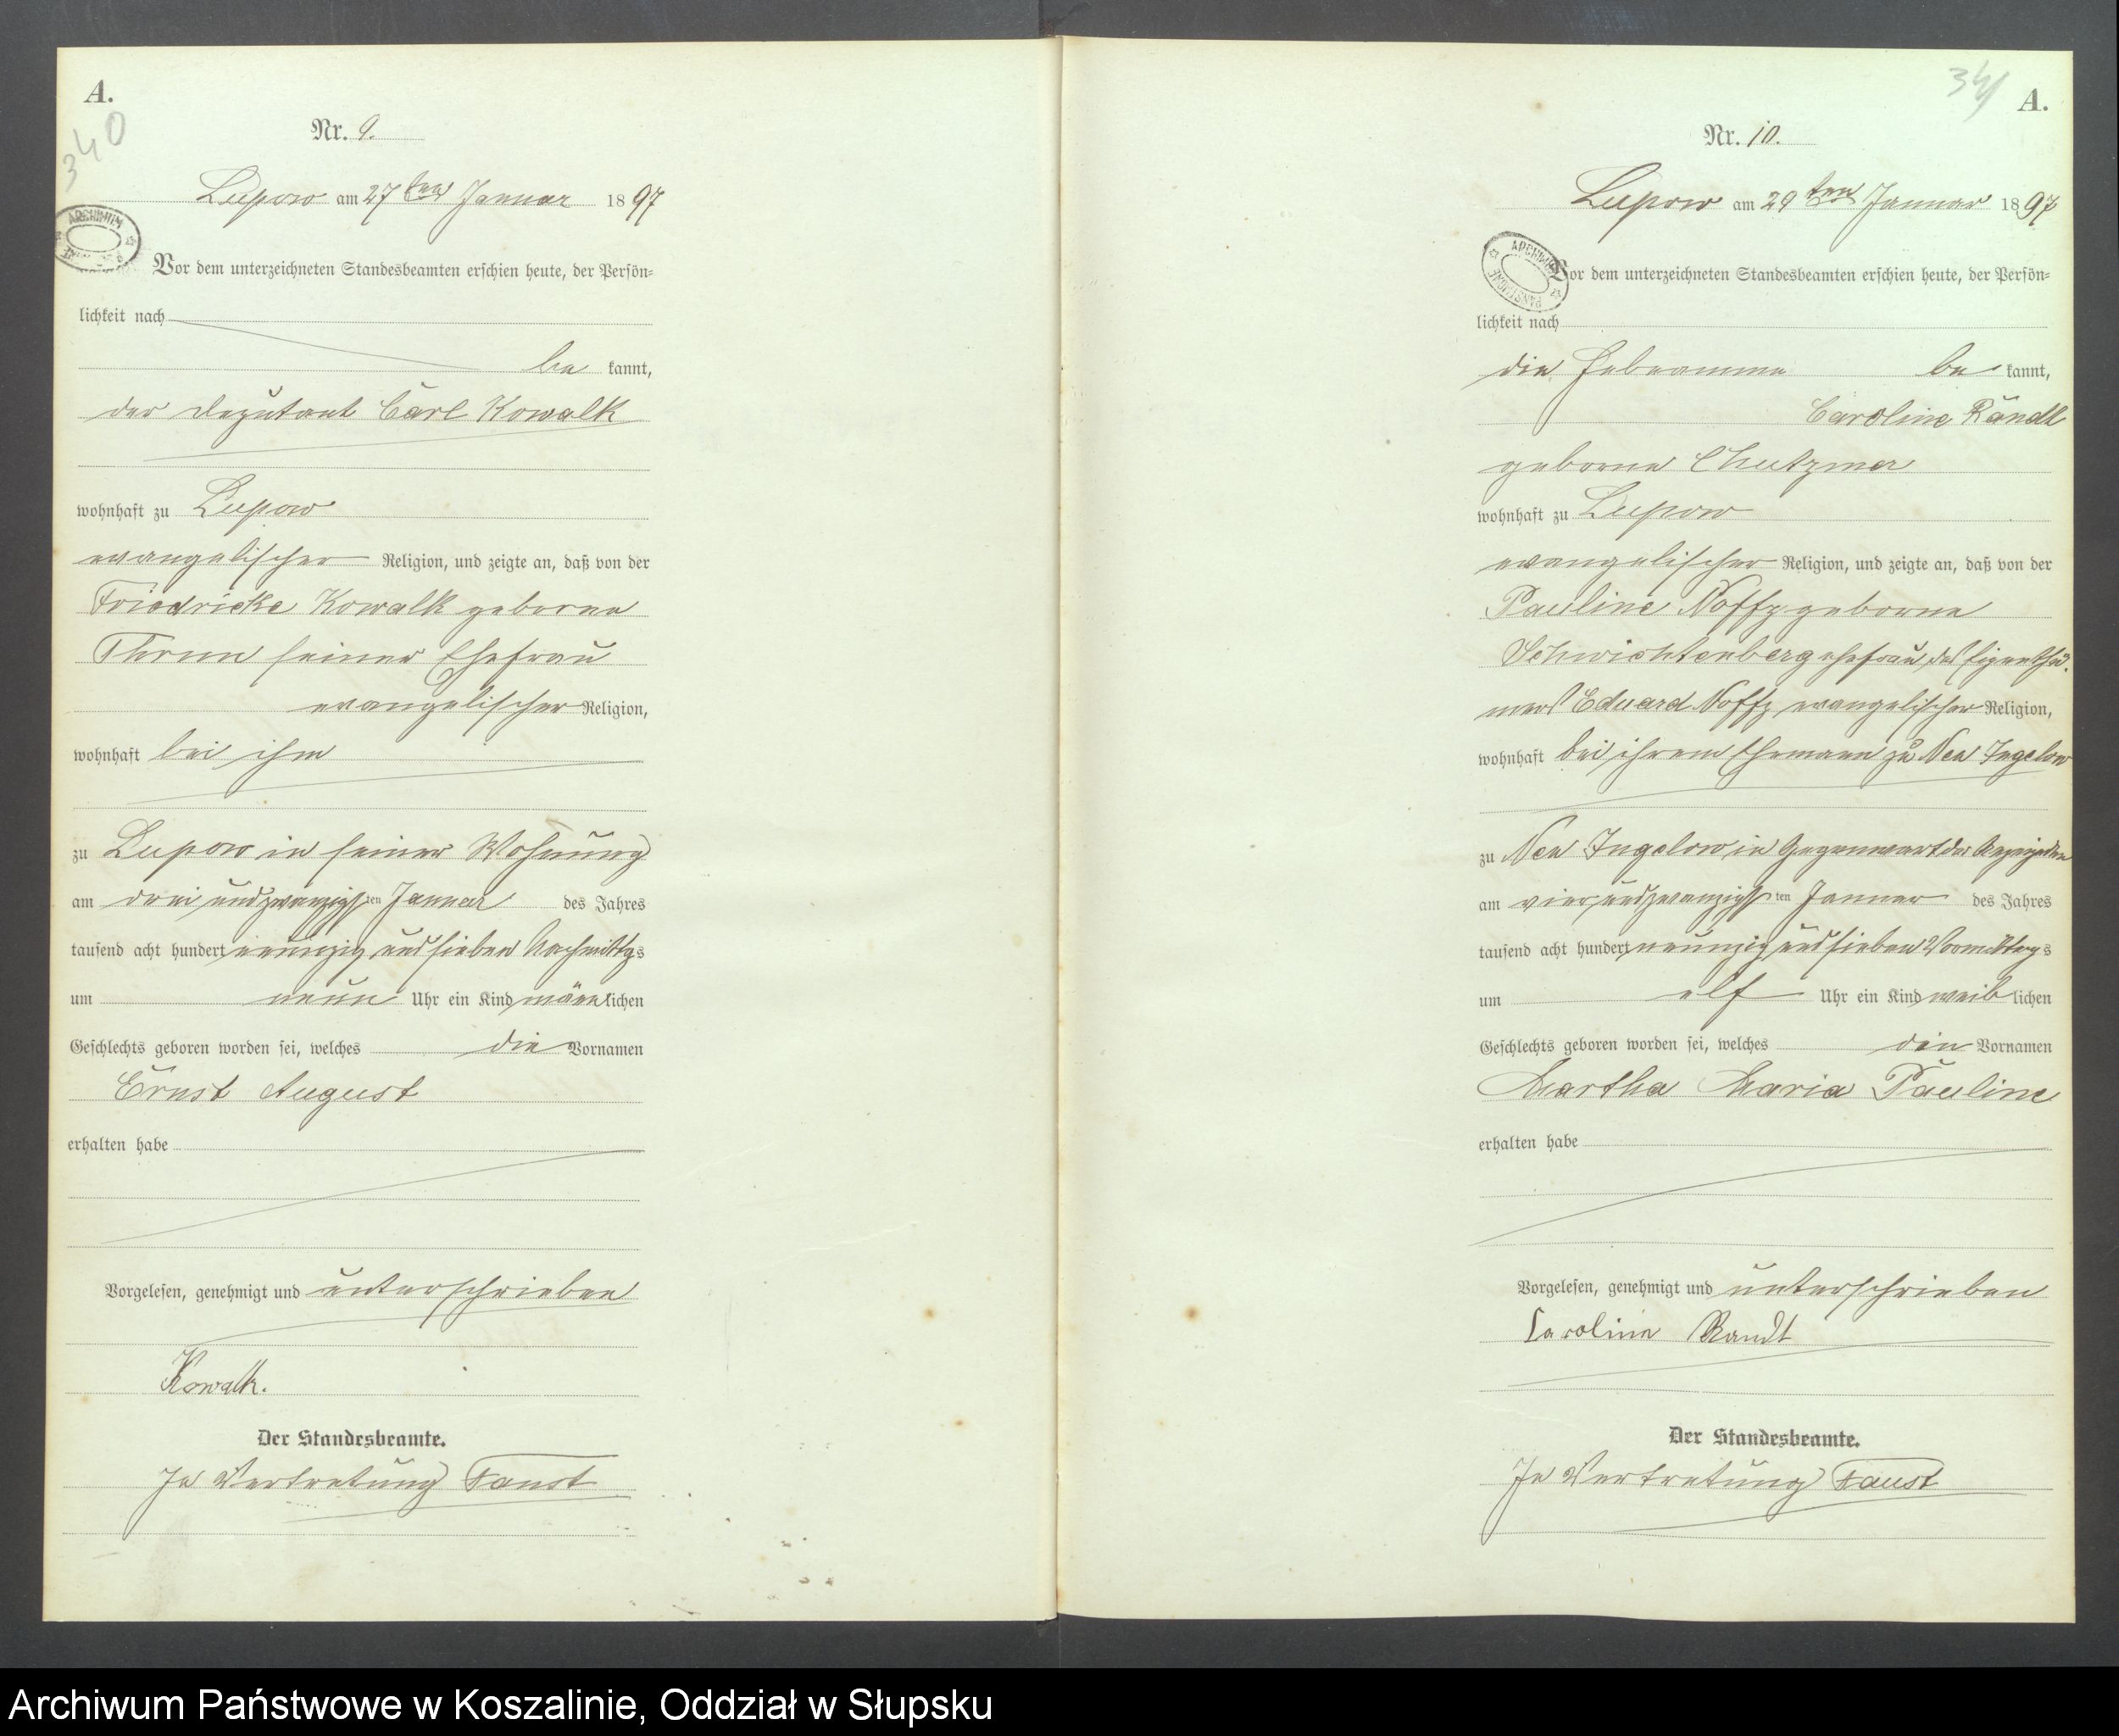 A.
340
Nr. 9.
Lupow am 27ten Januar 1897
Vor dem unterzeichneten Standesbeamten erschien heute, der Persön=
lichkeit nach
be kannt,
der Deputant Carl Kowalk
wohnhaft zu Lupow
evangelischer Religion, und zeigte an, daß von der
Friedricke Kowalk geborne
Thrun seiner Ehefrau
evangelischer Religion,
wohnhaft bei ihm
zu Lupow in seiner Wohnung
am drei und zwanzigsten Januar des Jahres
tausend acht hundert neunzig und sieben Nachmittags
um neun Uhr ein Kind männlichen
Geschlechts geboren worden sei, welches die Vornamen
Ernst August
erhalten habe
Vorgelesen, genehmigt und unterschrieben
Kowalk.
Der Standesbeamte.
In Vertretung Faust
341
A.
Nr. 10.
Lupow am 29ten Januar 1897
Vor dem unterzeichneten Standesbeamten erschien heute, der Persön=
lichkeit nach
die Hebeamme be kannt,
Caroline Rändt
geborne
wohnhaft zu Lupow
evangelischer Religion, und zeigte an, daß von der
Pauline Noffz geborne
Schwichtenberg ehefrau des Eigenthü-
mers Eduard Noffz evangelischer Religion,
wohnhaft bei ihrem Ehemann zu Neu Jugelow
zu Neu Jugelow in Gegenwart der Anzeigenden
am vier und zwanzigsten Januar des Jahres
tausend acht hundert neunzig und sieben Vormittags
um elf Uhr ein Kind weiblichen
Geschlechts geboren worden sei, welches den Vornamen
Martha Maria Pauline
erhalten habe
Vorgelesen, genehmigt und unterschrieben
Caroline Randt
Der Standesbeamte.
In Vertretung Faust
Archiwum Państwowe w Koszalinie, Oddział w Słupsku